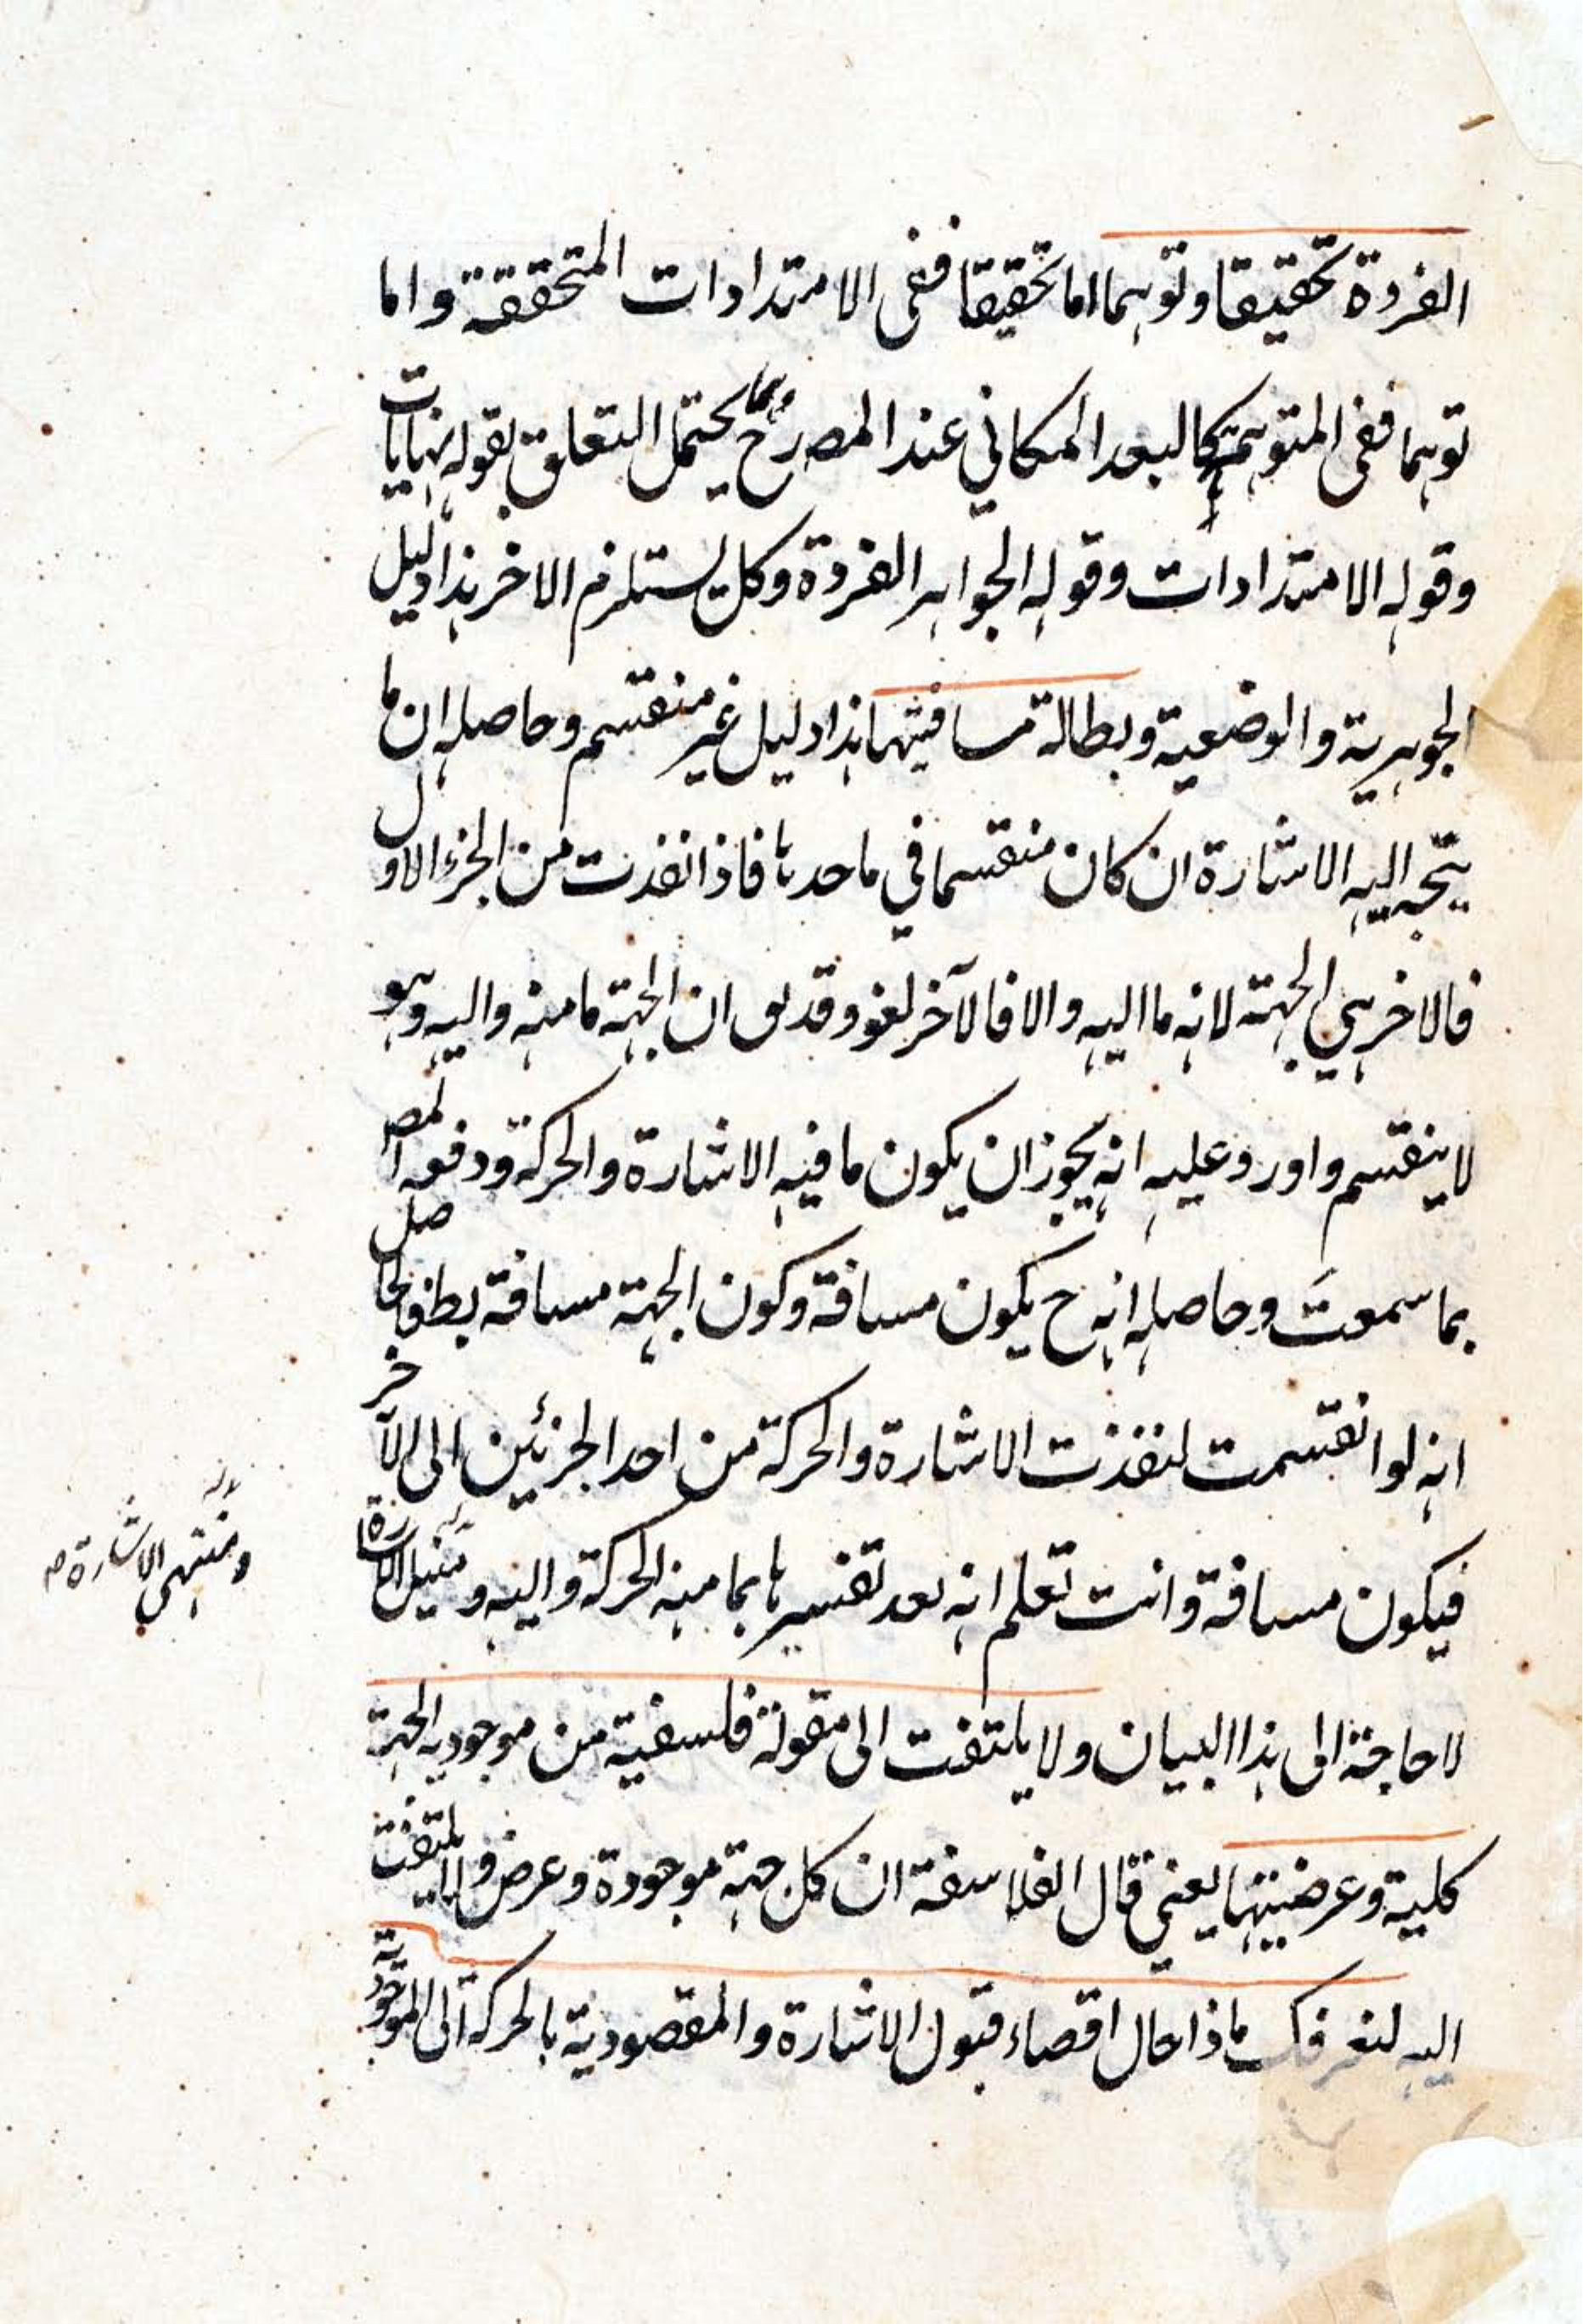 الفردة تحقيقا وتوهما اما تحقيقا ففى الامتدادات المتحققة واما
توهما ففى المتوهمة كالبعد المكاني عند المصـ رح وهما يحتمل التعلق بقوله نهايات
وقوله الامتدادات وقوله الجواهر الفردة وكل يستلزم الاخر هذا دليل
الجوهرية والوضعية وبطالة مسافيتها هذا دليل غير منقسم وحاصله ان ما
يتجه اليه الاشارة ان كان منقسما في ماحدها فاذا نفذت من الجزء الاول
فالاخر هي الجهة لانه ما اليه والا فالآخر لغو وقد ان الجهة ما منه واليه وهو
لا ينقسم واورد عليه انه يجوز ان يكون ما فيه الاشارة والحركة ودفعه المصـ
بما سمعتَ وحاصله انه ح يكون مسافة وكون الجهة مسافة بط فالحاصل
انه لو انقسمت لنفذت الاشارة والحركة من احد الجزئين الى الآخر
فيكون مسافة وانت تعلم انه بعد تفسيرها بما منه الحركة واليه و الاشارة
ومنتهى الاشارة صـ
لا حاجة الى هذا البيان ولا يلتفت الى مقولة فلسفية من موجودية الجهة
كلية وعرضيتها يعني قال الفلاسفة ان كل جهة موجودة وعرض ولا يلتفت
اليه لنعرفك ماذا حال اقصاء قبول الاشارة والمقصودية بالحركة الى الموجودية